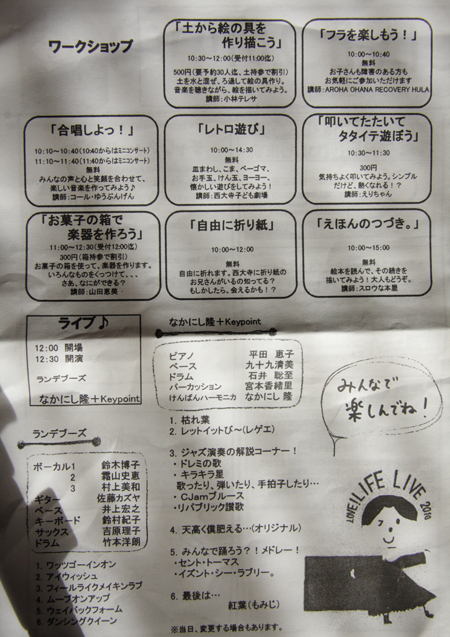 ワークショップ
「土から絵の具を
作り描こう」
10:30～12:00（受付11:00迄）
500円（要予約30人迄、土持参で割引）
土を水と混ぜ、ろ過して絵の具作り。
音楽を聴きながら、絵を描いてみよう。
講師：小林テレサ
「フラを楽しもう！」
10:00～10:40
無料
お子さんも障害のある方も
お気軽にご参加いただけます
講師：AROHA OHANA RECOVERY HULA
「合唱しよっ！」
10:10～10:40（10:40からはミニコンサート）
11:10～11:40（11:40からはミニコンサート）
無料
みんなの声と心と笑顔を合わせて、
楽しい音楽を作ってみよう♪
講師：コール・ゆうぶんげん
「レトロ遊び」
10:00～14:30
無料
皿まわし、こま、ベーゴマ、
お手玉、けん玉、ヨーヨー、
懐かしい遊びをしてみよう！
講師：西大寺子ども劇場
「叩いてたたいて
タタイテ遊ぼう」
10:30～11:30
300円
気持ちよく叩いてみよう。シンプル
だけど、熱くなれる！？
講師：えりちゃん
「お菓子の箱で
楽器を作ろう」
11:00～12:30（受付12:00迄）
300円（箱持参で割引）
お菓子の箱を使って、楽器を作ります。
いろんなものをくっつけて、、、
さあ、なにができる？
講師：山田恵美
「自由に折り紙」
10:00～12:00
無料
自由に折れます。西大寺に折り紙の
お兄さんがいるの知ってる？
もしかしたら、会えるかも！？
「えほんのつづき。」
10:00～15:00
無料
絵本を読んで、その続きを
描いてみよう！大人もどうぞ。
講師：スロウな本屋
ライブ♪
12:00 開場
12:30 開演
ランデブーズ
なかにし隆＋Keypoint
なかにし隆＋Keypoint
ピアノ 平田 恵子
ベース 九十九清美
ドラム 石井 聡至
パーカッション 宮本香緒里
けんばんハーモニカ なかにし 隆
1. 枯れ葉
2. レットイットビ～（レゲエ）
3. ジャズ演奏の解説コーナー！
・ドレミの歌
・キラキラ星
歌ったり、弾いたり、手拍子したり…
・CJamブルース
・リパブリック讃歌
4. 天高く僕肥える…（オリジナル）
5. みんなで踊ろう？！メドレー！
・セント・トーマス
・イズント・シー・ラブリー。
6. 最後は…
紅葉（もみじ）
※当日、変更する場合もあります。
ランデブーズ
ボーカル1 鈴木博子
2 霜山史恵
3 村上美和
ギター 佐藤カズヤ
ベース 井上宏之
キーボード 鈴村紀子
サックス 吉原理子
ドラム 竹本洋朗
1. ワッツゴーインオン
2. アイウィッシュ
3. フィールライクメイキンラブ
4. ムーブオンアップ
5. ウェイバックフォーム
6. ダンシングクイーン
みんなで
楽しんでね！
LOVE! LIFE LIVE 2010